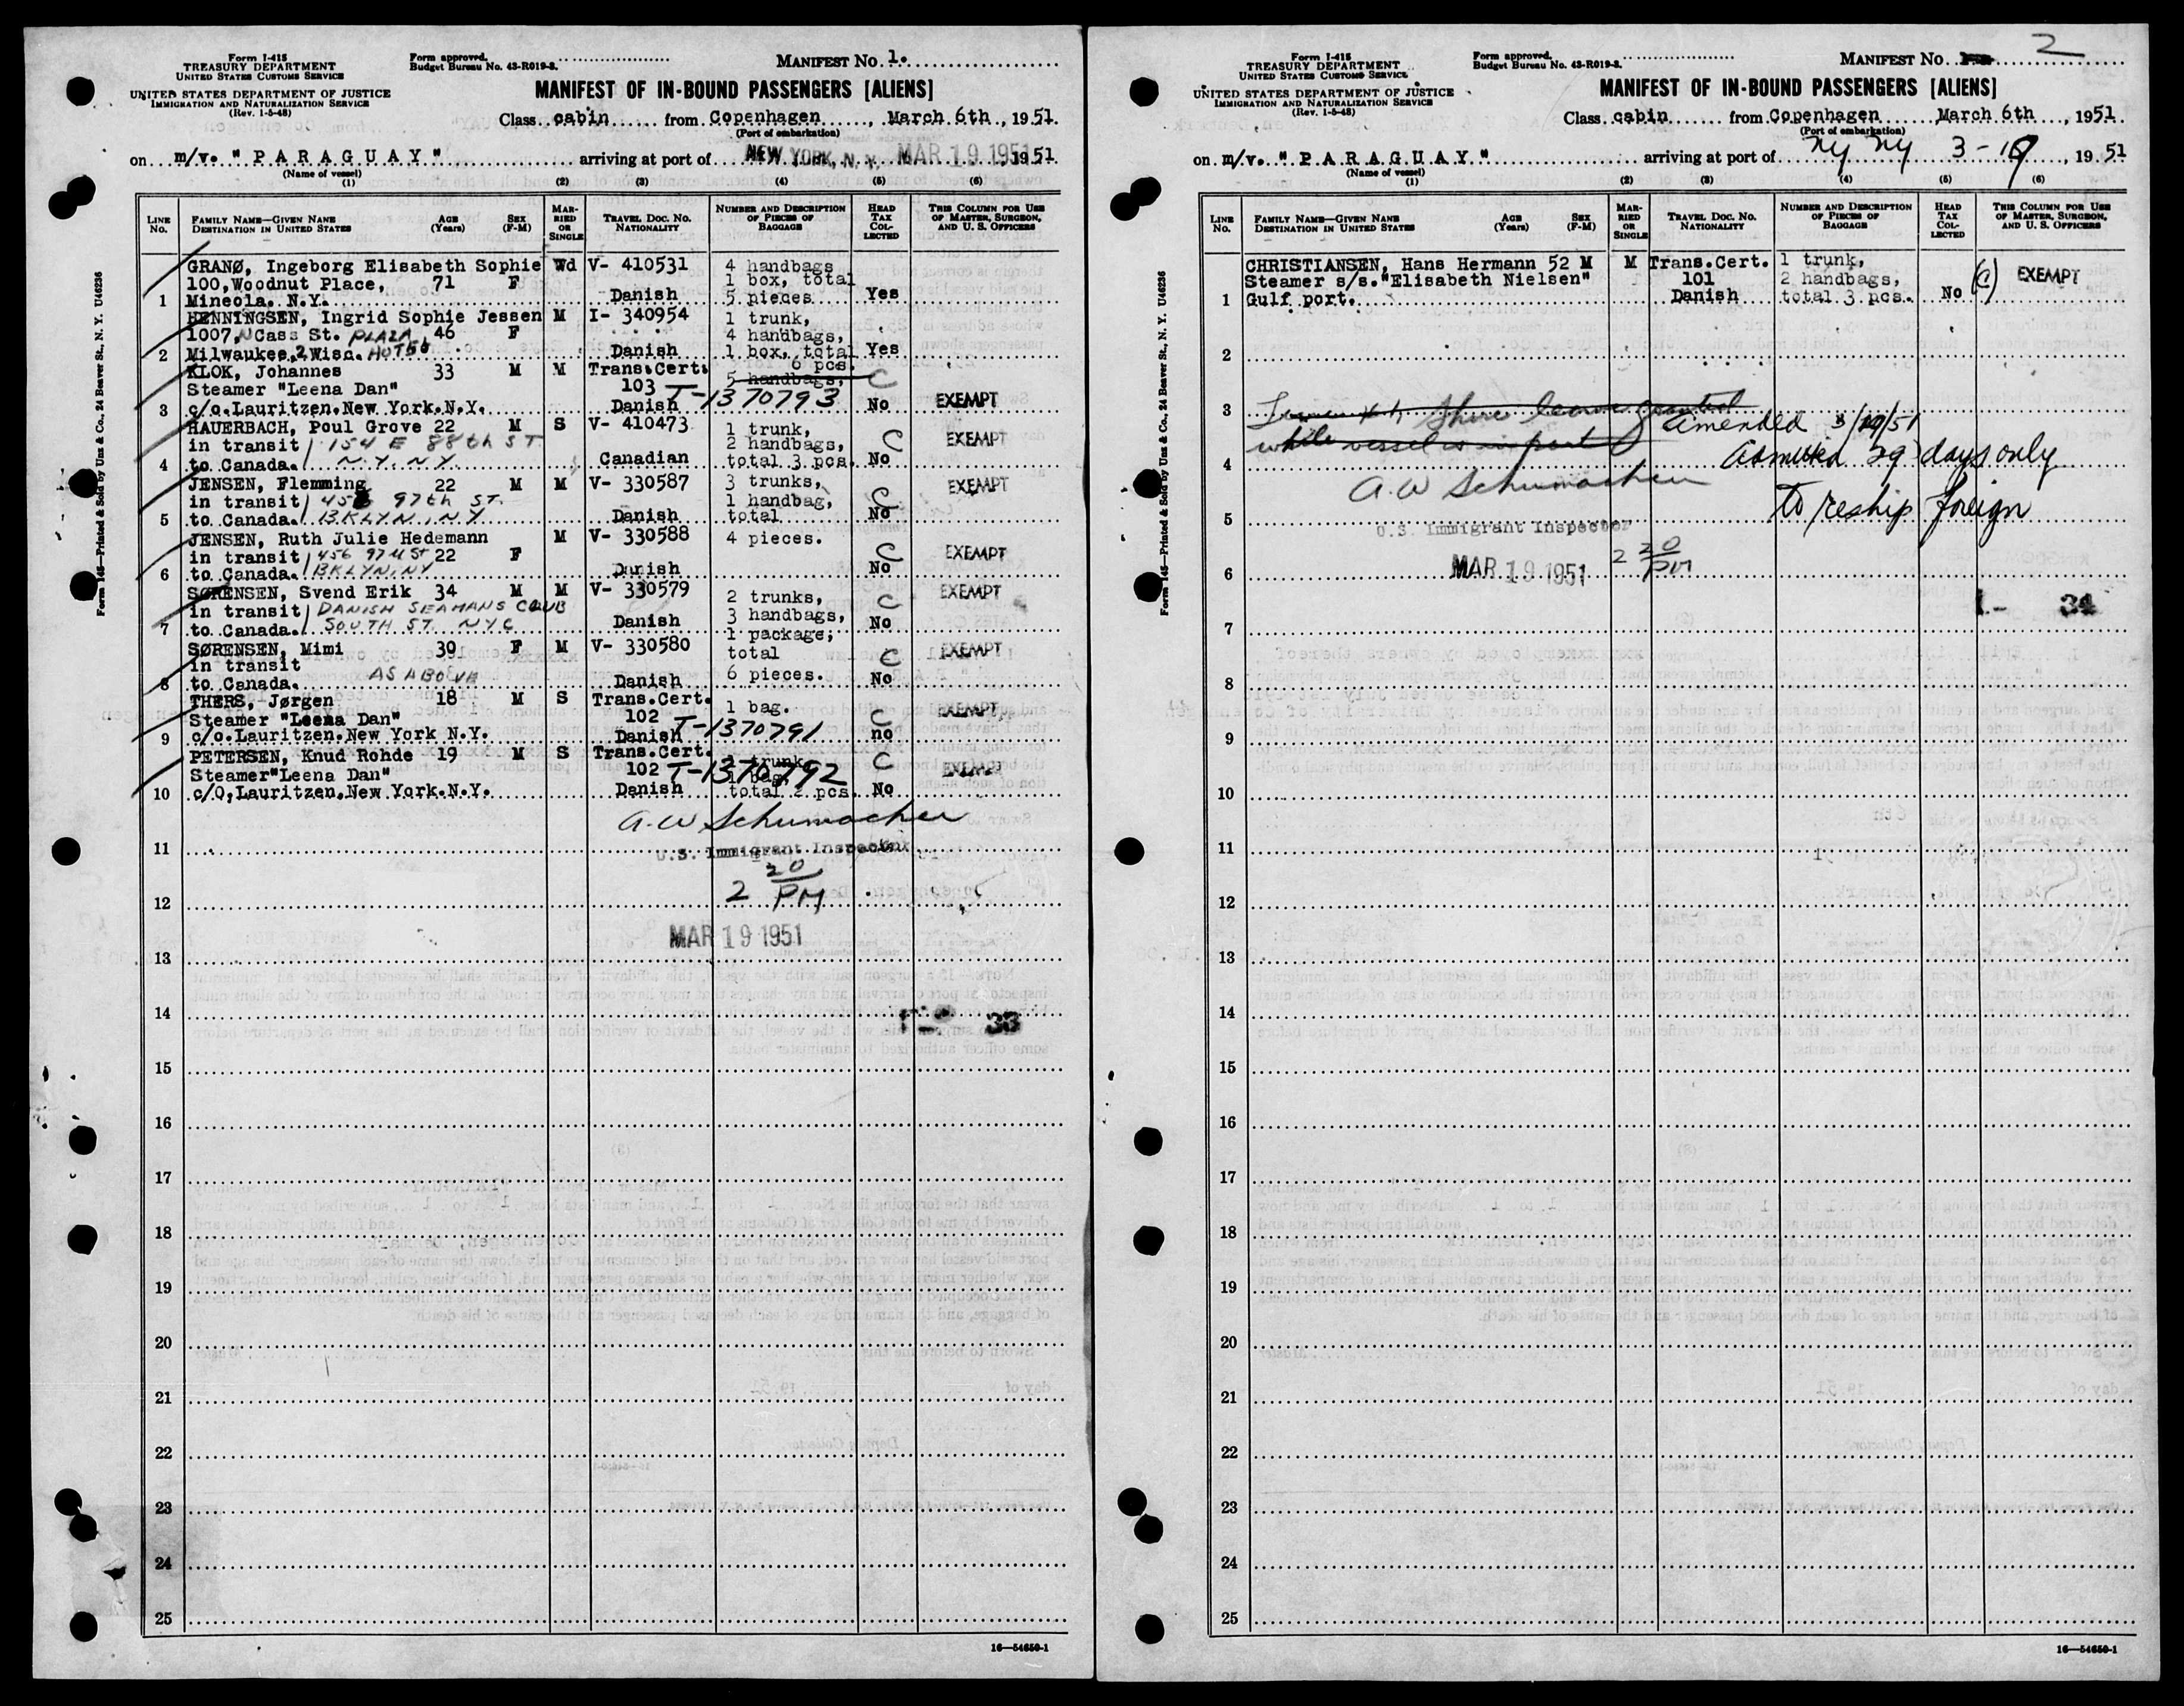 Form I-415
TREASURY DEPARTMENT
UNITED STATES CUSTOMS SERVICE
UNITED STATES DEPARTMENT OF JUSTICE
IMMIGRATION AND NATURALIZATION SERVICE
(Rev. 1-5-48)
Form approved.
Budget Bureau No. 43-R019-3.
MANIFEST NO. 1.
MANIFEST OF IN-BOUND PASSENGERS [ALIENS]
Class cabin from Copenhagen, March 6th, 1951.
(Port of embarkation)
on m/v. "PARAGUAY" arriving at port of NEW YORK, N.Y. MAR 19 1951, 1951
(Name of vessel)
(1) (2) (3) (4) (5) (6)
LINE No. FAMILY NAME—GIVEN NAME DESTINATION IN UNITED STATES AGE (Years) SEX (F-M) MARRIED OR SINGLE TRAVEL DOC. NO. NATIONALITY NUMBER AND DESCRIPTION OF PIECES OF BAGGAGE HEAD TAX COLLECTED THIS COLUMN FOR USE OF MASTER, SURGEON, AND U. S. OFFICERS
GRANØ, Ingeborg Elisabeth Sophie Wd V- 410531 4 handbags
100, Woodnut Place, 71 F 1 box, total
1 Mineola. N.Y. Danish 5 pieces Yes
HENNINGSEN, Ingrid Sophie Jessen M I- 340954 1 trunk,
1007, N Cass St. PLAZA 46 F 4 handbags,
2 Milwaukee, 2 Wisc. HOTEL Danish 1 box, total Yes
6 pcs.
KLOK, Johannes 33 M M Trans.Cert. 5 handbags, C
Steamer "Leena Dan" 103 T-1370793
3 c/o.Lauritzen.New York.N.Y. Danish No EXEMPT
HAUERBACH, Poul Grove 22 M S V- 410473 1 trunk,
in transit 154 E 88th ST. 2 handbags, C EXEMPT
4 to Canada. N.Y. NY Canadian total 3 pcs. No
JENSEN, Flemming 22 M M V- 330587 3 trunks, EXEMPT
in transit 456 97th ST. 1 handbag, C
5 to Canada. BKLYN., NY Danish total No
JENSEN, Ruth Julie Hedemann M V- 330588 4 pieces.
in transit 456 97th St 22 F C EXEMPT
6 to Canada. BKLYN, NY Danish No
SØRENSEN, Svend Erik 34 M M V- 330579 2 trunks, C EXEMPT
in transit DANISH SEAMANS CLUB 3 handbags,
7 to Canada. SOUTH ST. NYC Danish 1 package, No
SØRENSEN, Mimi 30 F M V- 330580 total C EXEMPT
in transit
8 to Canada. AS ABOVE Danish 6 pieces. No
THERS, Jørgen 18 M S Trans.Cert. 1 bag.
Steamer "Leena Dan" 102 T-1370791 C EXEMPT
9 c/o.Lauritzen.New York N.Y. Danish no
PETERSEN, Knud Rohde 19 M S Trans.Cert. 1 trunk C
Steamer"Leena Dan" 102 T-1370792 1 bag, EXEMPT
10 c/o,Lauritzen.New York.N.Y. Danish total 2 pcs. No
A.W Schumacher
11 U.S. Immigrant Inspector
12 2 20 PM
MAR 19 1951
13
14 33
15
16
17
18
19
20
21
22
23
24
25
16—54650-1
Form 145—Printed & Sold by Unz & Co., 24 Beaver St., N. Y. U46236
Form I-415
TREASURY DEPARTMENT
UNITED STATES CUSTOMS SERVICE
UNITED STATES DEPARTMENT OF JUSTICE
IMMIGRATION AND NATURALIZATION SERVICE
(Rev. 1-5-48)
Form approved.
Budget Bureau No. 43-R019-3.
MANIFEST NO. 2
MANIFEST OF IN-BOUND PASSENGERS [ALIENS]
Class cabin from Copenhagen March 6th, 1951
(Port of embarkation)
on m/v. "PARAGUAY" arriving at port of Ny Ny 3-19, 1951
(Name of vessel)
(1) (2) (3) (4) (5) (6)
LINE No. FAMILY NAME—GIVEN NAME DESTINATION IN UNITED STATES AGE (Years) SEX (F-M) MARRIED OR SINGLE TRAVEL DOC. NO. NATIONALITY NUMBER AND DESCRIPTION OF PIECES OF BAGGAGE HEAD TAX COLLECTED THIS COLUMN FOR USE OF MASTER, SURGEON, AND U. S. OFFICERS
CHRISTIANSEN, Hans Hermann 52 M M Trans.Cert. 1 trunk,
Steamer s/s."Elisabeth Nielsen" 101 2 handbags, (C) EXEMPT
1 Gulf port. Danish total 3 pcs. No
2
3 shore leave granted
while vessel is in port
amended 3/19/51
4 admitted 29 days only
A.W Schumacher
to reship foreign
5 U.S. Immigrant Inspector
6 MAR 19 1951 2 20 PM
1- 34
7
8
9
10
11
12
13
14
15
16
17
18
19
20
21
22
23
24
25
16—54650-1
Form 145—Printed & Sold by Unz & Co., 24 Beaver St., N. Y. U46236